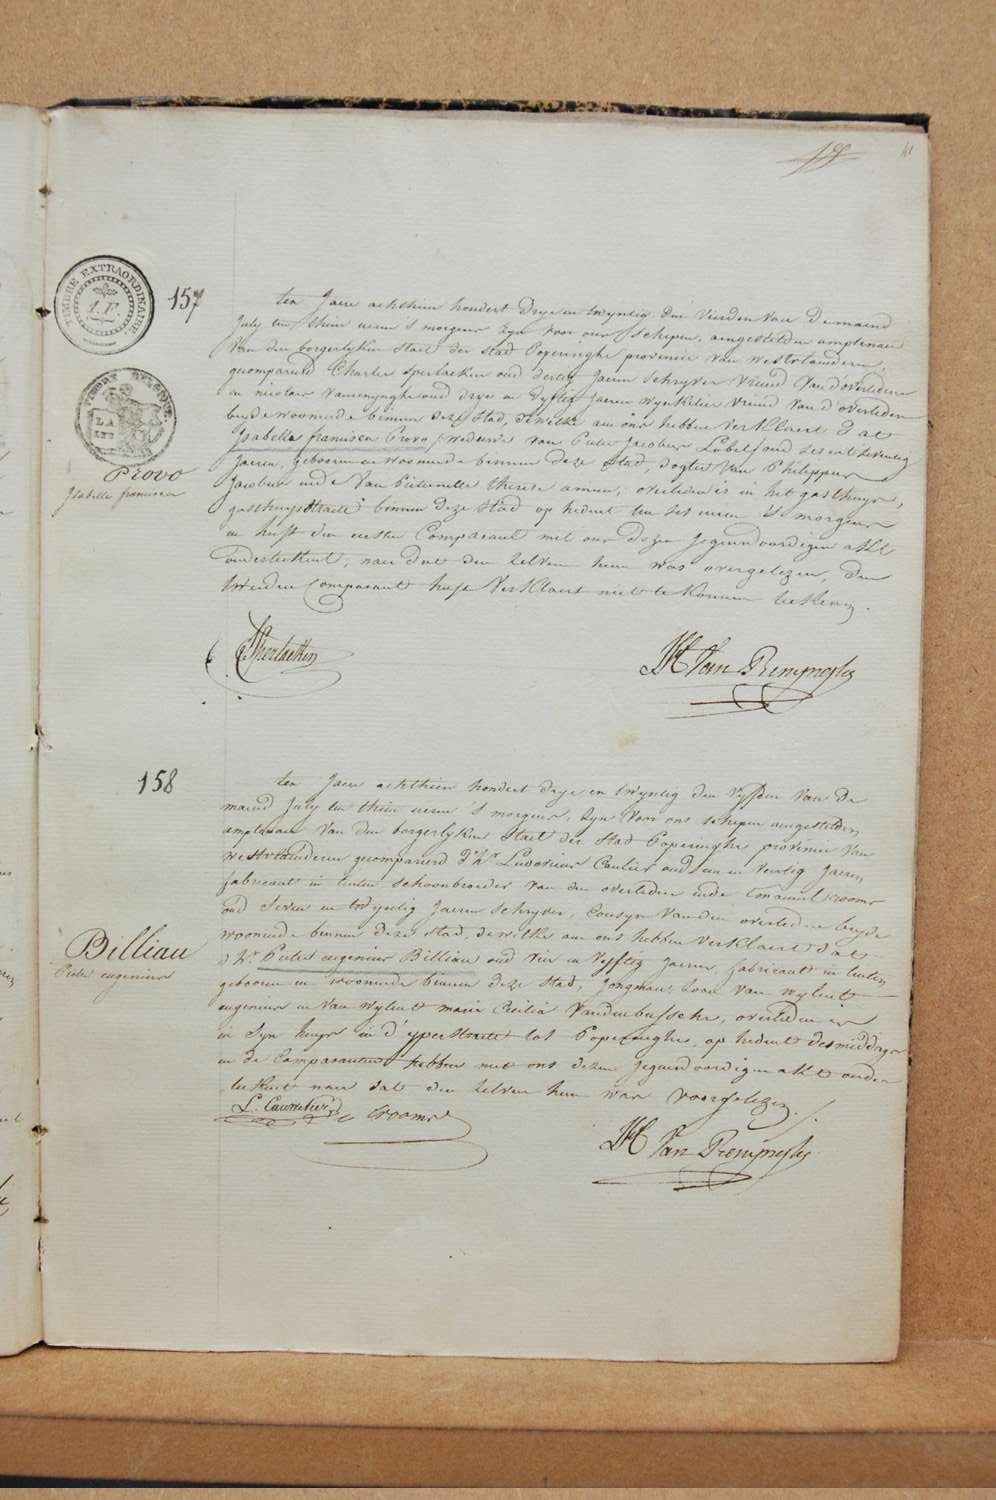 41
TIMBRE EXTRAORDINAIRE.
1.F.
157
ten Jaere achthien hondert drye en twyntig den vierden van de maend
July ten thien ueren 's morgens zyn voor ons schepen, aengestelden amptenaer
van den borgerlyken staet der stad Poperinghe provincie van westvlaenderen,
gecompareerd Charles Sperlaeken oud dertig Jaeren schryver vriend van d'overledene
en nicolaes oud drye en vyftig Jaeren wynkelier vriend van d'overledene
beyde woonende binnen deze stad, dewelke aen ons hebben verklaert dat
Isabella francisca Provo, weduwe van Pieter Jacobus Lobel oud ses en tseventig
Jaeren, geboren en woonende binnen deze stad, dogter van Philippus
Jacobus ende van Pieternelle therese overleden is in het gasthuys,
gasthuysstraete binnen deze stad op heden ten ses ueren 's morgens
en heeft den eersten Comparant met ons dezen jegenwoordigen akt
onderteekent, naer dat den zelven hem was overgelezen, den
tweeden Comparant heeft verklaert niet te konnen teekenen.
TIMBRE
LA
Provo
Isabelle francisca
C Sperlaeken
Van Renynghe
158
ten Jaere achthien hondert drye en twyntig den vyfden van de
maend July ten thien ueren 's morgens, zyn voor ons schepen aengestelden
amptenaer van den borgerlyken staet der stad Poperinghe provincie van
westvlaenderen gecompareerd d'hr Ludovicus oud een en veertig Jaeren
fabricant in linten schoonbroeder van den overleden ende Emanuel crooms
oud seven en twyntig Jaeren schryver, Cousyn van den overledene beyde
woonende binnen deze stad, dewelke aen ons hebben verklaert dat
d'hr Pieter eugenius Billiau oud vier en vyftig Jaeren, fabricant in linten
geboren en woonende binnen deze stad, jongman, zoon van wylent
eugenius en van wylent marie Cecilia Vandenbussche, overleden is
in zyn huys in d'yperstraete tot Poperinghe, op heden desmiddags
en de Comparanten hebben met ons dezen jegenwoordigen akt onder
teekent naer dat den zelven hem was voorgelezen.
Billiau
Pieter eugenius
E crooms
Van Renynghe